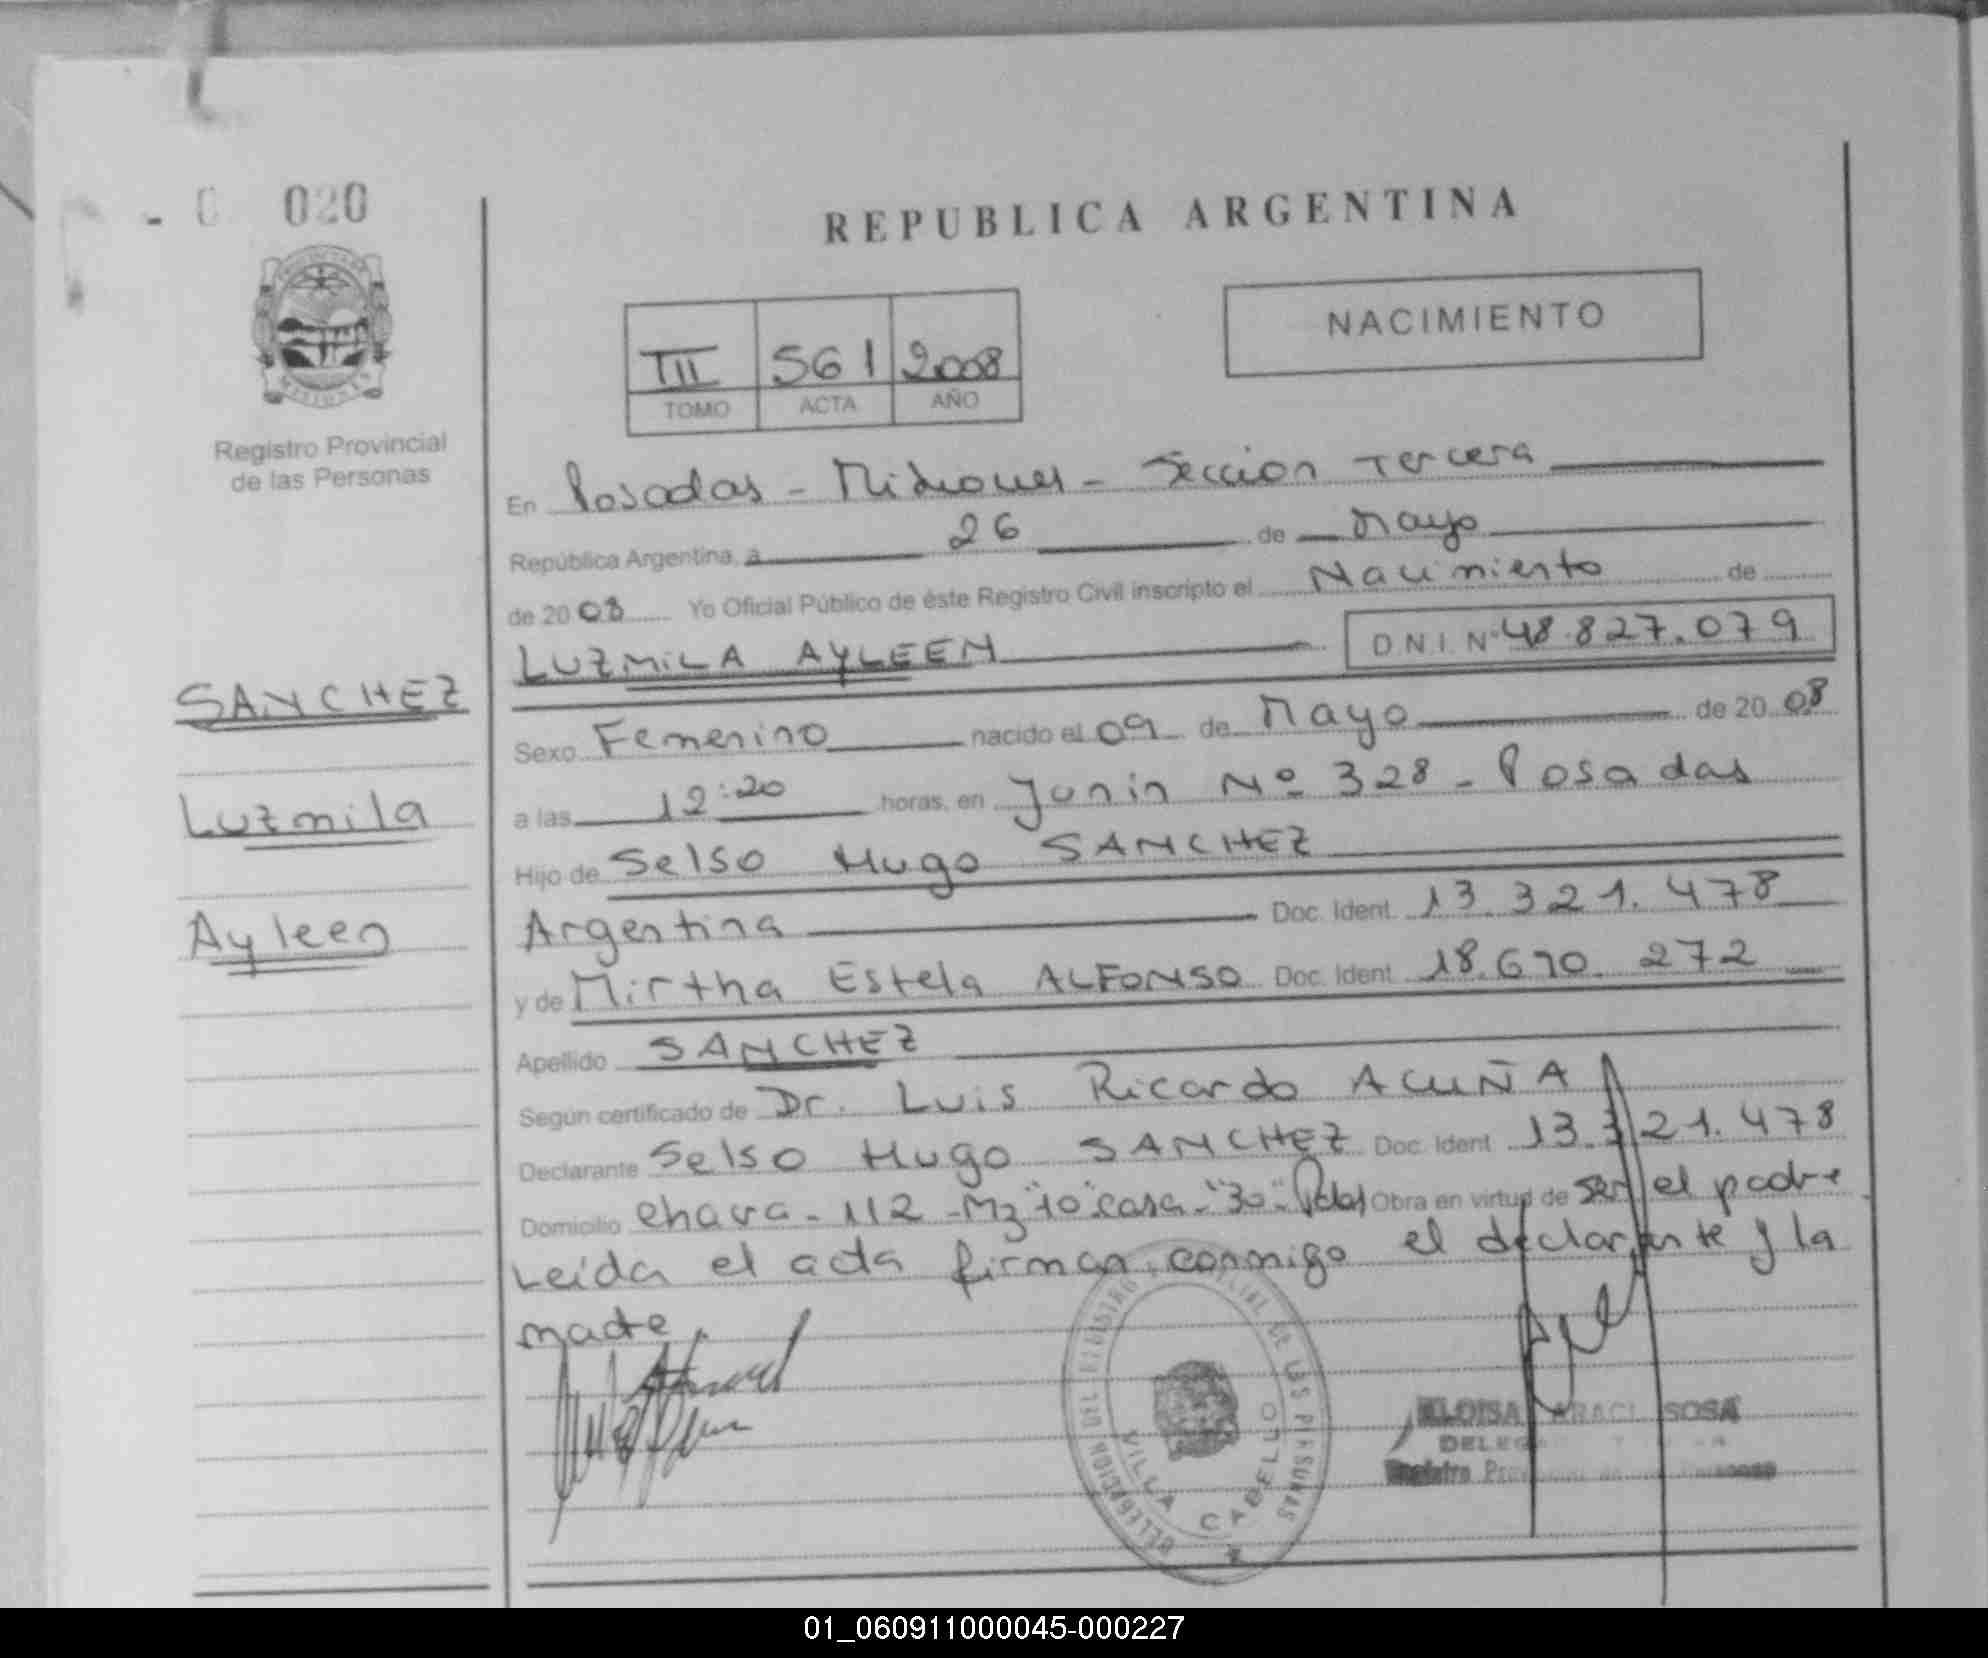 020
REPUBLICA ARGENTINA
NACIMIENTO
III 561 2008
TOMO ACTA AÑO
MISIONES
Registro Provincial
de las Personas
En Posadas - Misiones - Sección Tercera
República Argentina, a 26 de Mayo
de 2008 Yo Oficial Público de éste Registro Civil inscripto el Nacimiento de
LUZMILA AYLEEN D.N.I. Nº 48.827.079
SANCHEZ
Luzmila
Ayleen
Sexo Femenino nacido el 09 de Mayo de 20 08
a las 12:20 horas, en Junin Nº 328 - Posadas
Hijo de Selso Hugo SANCHEZ
Argentina Doc. Ident. 13.321.478
y de Mirtha Estela ALFONSO Doc. Ident. 18.670.272
Apellido SANCHEZ
Según certificado de Dr. Luis Ricardo ACUÑA
Declarante Selso Hugo SANCHEZ Doc. Ident. 13.321.478
Domicilio Chacra - 112 - Mz "10" casa - "30" - Pdas Obra en virtud de ser el padre
Leída el acta firman conmigo el declarante y la
madre.
DELEGACION DEL REGISTRO PROVINCIAL DE LAS PERSONAS
VILLA CABELLO
ELOISA ARACI SOSA
Registro Provincial de las Personas
01_060911000045-000227